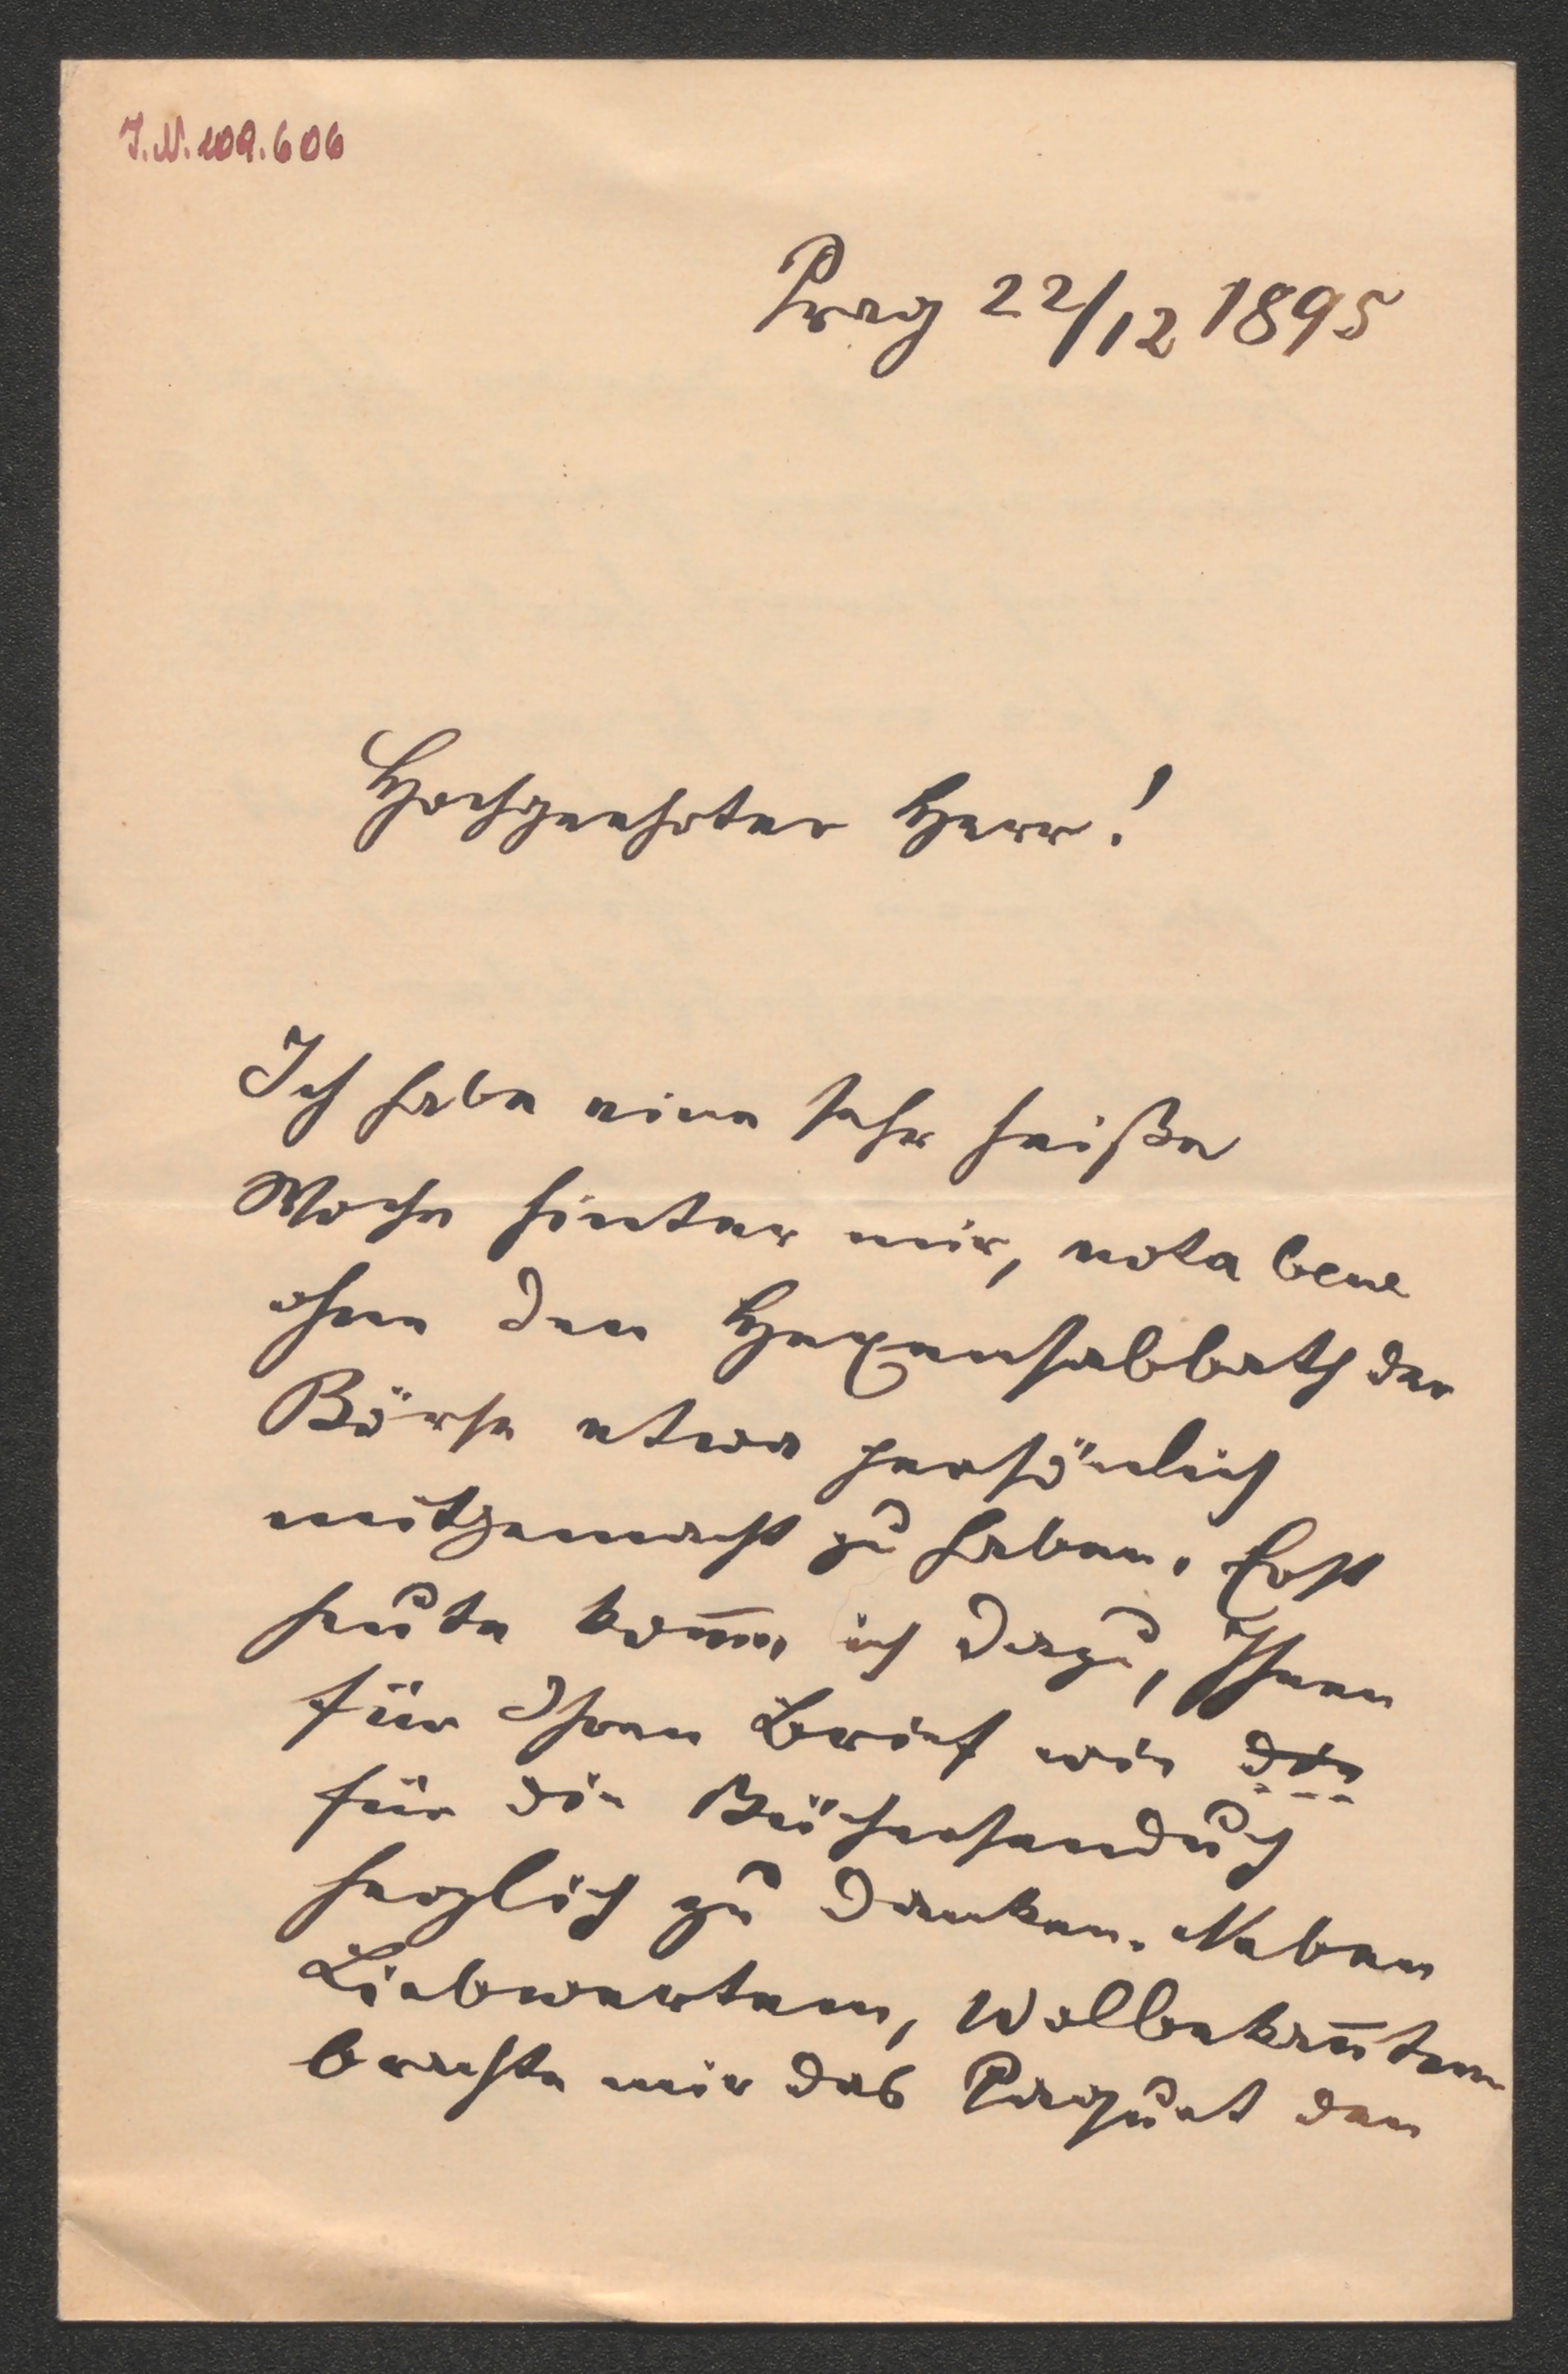 I.N. 109.606
Prag 22/12 1895
Hochgeehrter Herr!
Ich habe eine sehr heiße
Woche hinter mir, nota bene
ohne den Hexensabbath der
Börse etwa persönlich
mitgemacht zu haben. Erst
heute kom̅e ich dazu, Ihnen
für Ihren Brief wie die
für die Büchersendung
herzlich zu danken. Neben
Liebwertem, Wolbekan̅tem
brachte mir das Paquet den